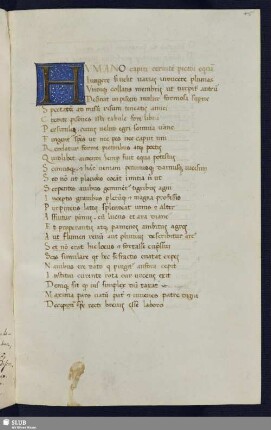 HVMANO capiti cervicem pictor equinam
Iungere si velit & varias inducere plumas
Undique collatis membris ut turpiter atrum
Desinat in piscem mulier formosa superne
Spectatum admissi risum teneatis amici
Credite pisones isti tabule fore librum
Persimilem cuius velut egri somnia vane
Fingentur species ut nec pes nec caput uni
Reddatur forme pictoribus atque poetis
Quidlibet audendi semper fuit equa potestas
Scimus & hanc veniam petimusque damusque vicissim
Sed non ut placidis coeant immitia non ut
Serpentes avibus geminentur tigribus agni
Inceptis gravibus plerumque & magna professis
Purpureus late qui splendeat unus & alter
Assuitur pannus cum lucus & ara diane
Et properantis aque per amenos ambitus agros
Aut flumen renum aut pluvius describitur arcus
Sed non erat his locus & fortasse cupressum
Scis simulare quid hoc si fractis enatat exspes
Navibus ere dato qui pingitur amfora cepit
Institui currente rota cur urceus exit
Denique sit quod vis simplex
Maxima pars vatum pater & iuvenes patre digni
Decipimur specie recti brevis esse laboro
SLUB